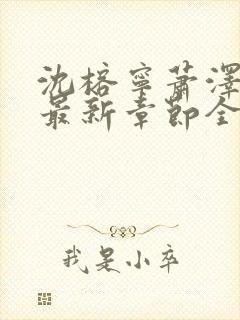 沈榕寧蕭澤
最新章節全
我是小卒